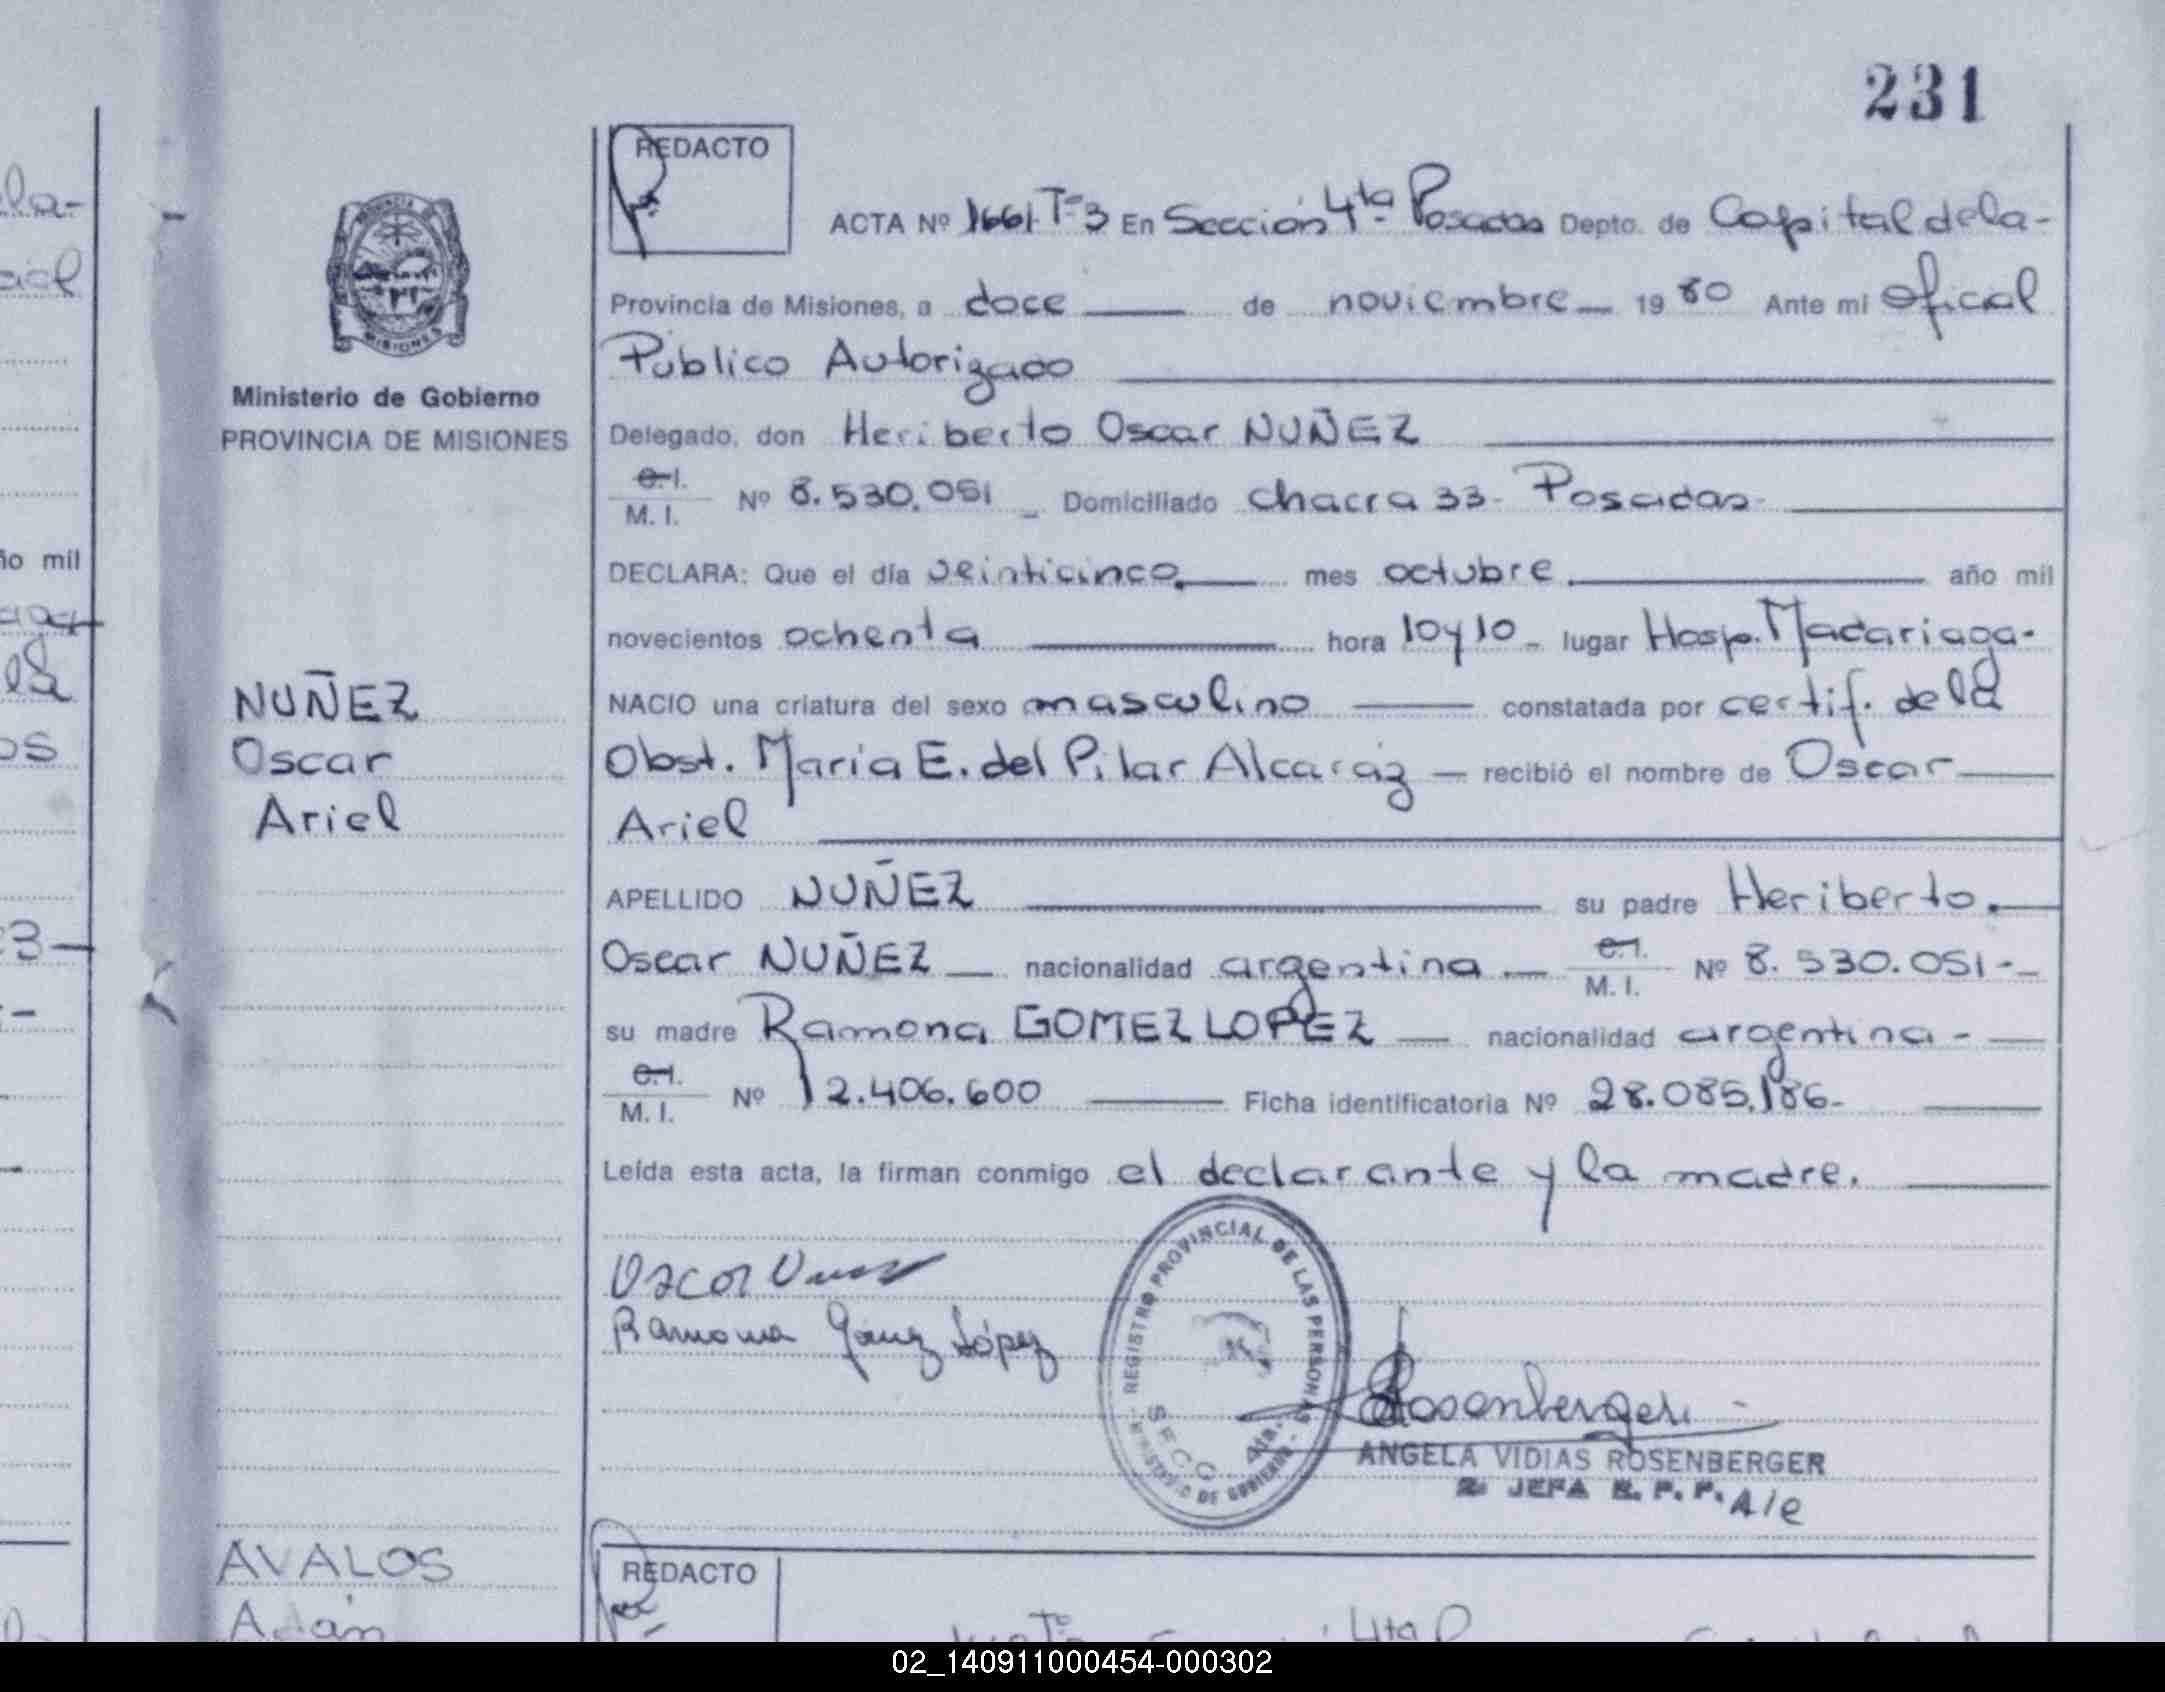 231
REDACTO
ACTA Nº 1661 Tº 3 En Sección 4ta Posadas Depto. de Capital de la-
Provincia de Misiones, a doce de noviembre 1980 Ante mi Oficial
Público Autorizado
Ministerio de Gobierno
PROVINCIA DE MISIONES
Delegado, don Heriberto Oscar NUÑEZ
C.I.
M. I. Nº 8.530.051 Domiciliado Chacra 33- Posadas-
DECLARA: Que el día veinticinco mes octubre año mil
novecientos ochenta hora 10 y 10 - lugar Hosp. Madariaga-
NACIO una criatura del sexo masculino constatada por certif. de la
Obst. María E. del Pilar Alcaráz recibió el nombre de Oscar
Ariel
NUÑEZ
Oscar
Ariel
APELLIDO NUÑEZ su padre Heriberto
Oscar NUÑEZ nacionalidad argentina C.I.
M. I. Nº 8.530.051-
su madre Ramona GOMEZ LOPEZ nacionalidad argentina-
C.I.
M. I. Nº 12.406.600 Ficha identificatoria Nº 28.085.186-
Leída esta acta, la firman conmigo el declarante y la madre.
Ramona Gómez López
REGISTRO PROVINCIAL DE LAS PERSONAS
SECC. 4ta.
MINISTERIO DE GOBIERNO
Rosenberger
ANGELA VIDIAS ROSENBERGER
2º JEFA R. P. P. A/C
AVALOS
Adán
REDACTO
ño mil
02_140911000454-000302